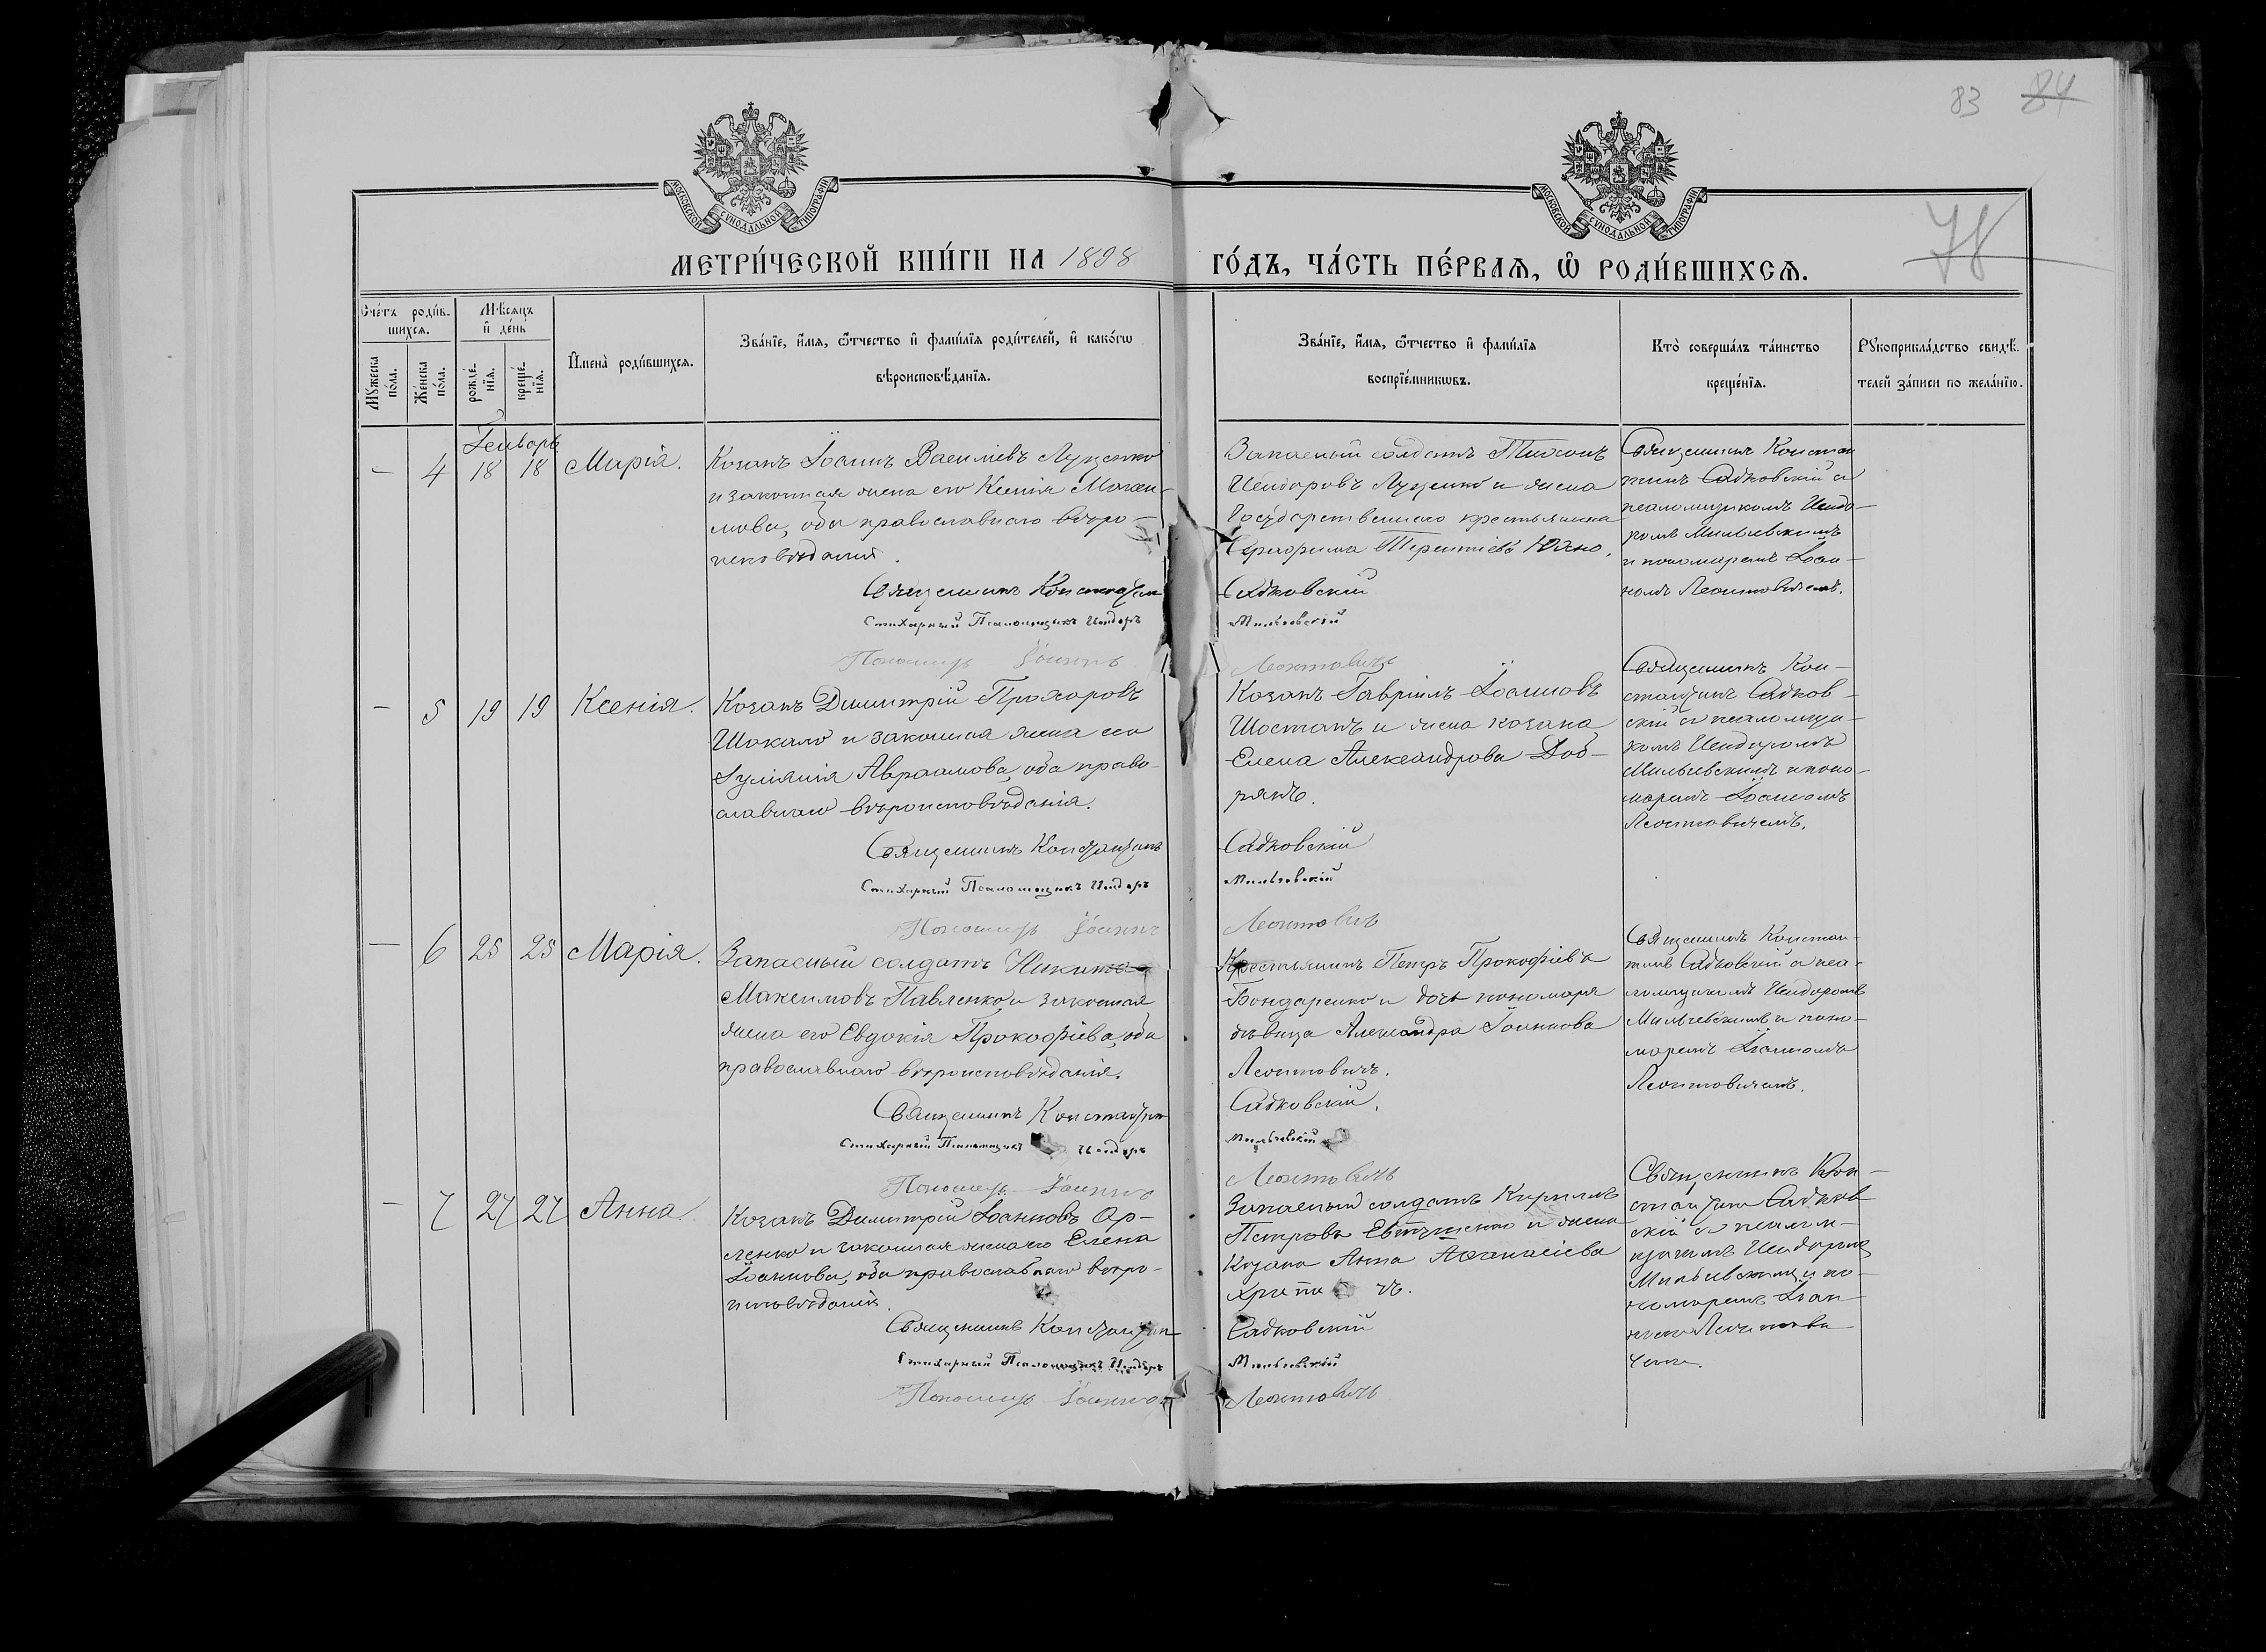 83 84
78
МОСКОВСКОЙ СѴНОДАЛЬНОЙ ТИПОГРАФІИ
МОСКОВСКОЙ СѴНОДАЛЬНОЙ ТИПОГРАФІИ
МЕТРИ́ЧЕСКОЙ КНИ́ГИ НА 1898 ГО́ДЪ, ЧА́СТЬ ПЕ́РВАѦ, Ѽ РОДИ́ВШИХСѦ.
Сче́тъ роди́в-
шихсѧ.
Мꙋжеска по́ла.
Же́нска по́ла.
Мѣ́сѧцъ
и҆ де́нь
рожде́-
нїѧ.
креще́-
нїѧ.
И҆мена̀ роди́вшихсѧ.
Зва́нїе, и҆́мѧ, ѻ҆́тчество и҆ фамѝлїѧ роди́телей, и҆ како́гѡ
вѣроисповѣ́данїѧ.
Зва́нїе, и҆́мѧ, ѻ҆́тчество и҆ фамѝлїѧ
воспрїе́мникѡвъ.
Кто̀ соверша́лъ та́инство
креще́нїѧ.
Рꙋкоприкла́дство свидѣ́-
телей за́писи по жела́нїю.
Генварь
— 4 18 18 Марія.
Козакъ Іоаннъ Василіевъ Луценко
и законная жена его Ксенія Макси-
мова, оба православнаго вѣро-
исповѣданія.
Священникъ Константин
Стихарный Псаломщикъ Исидоръ
Пономарь Іоаннъ
Запасный солдатъ Тихонъ
Исидоровъ Луценко и жена
Государственнаго крестьянина
Терентіевъ
Садковскій
Мильевскій
Леонтовичъ
Священникъ Констан
тинъ Садковскій съ
псаломщикомъ Исидо-
ромъ Мильевскимъ
и пономаремъ Іоан-
номъ Леонтовичемъ.
— 5 19 19 Ксенія.
Козакъ Димитрій Прохоровъ
Шокало и законная жена его
Іуліанія Авраамова, оба право-
славнаго вѣроисповѣданія.
Священникъ Константинъ
Стихарный Псаломщикъ Исидоръ
Пономарь Іоаннъ
Козакъ Гавріилъ Іоанновъ
Шостакъ и жена козака
Елена Александрова Доб-
рякъ.
Садковскій
Мильевскій
Леонтовичъ
Священникъ Кон-
стантинъ Садков-
скій съ псаломщи-
комъ Исидоромъ
Мильевскимъ и поно-
маремъ Іоанномъ
Леонтовичемъ.
— 6 25 25 Марія.
Запасный солдатъ Никита
Максимовъ Павленко и законная
жена его Евдокія Прокофіева, оба
православнаго вѣроисповѣданія.
Священникъ Константин
Стихарный Псаломщикъ Исидоръ
Пономарь Іоаннъ
Крестьянинъ Петръ Прокофіевъ
Бондаренко и дочь пономаря
дѣвица Александра Іоаннова
Леонтовичъ.
Садковскій.
Мильевскій
Леонтовичъ
Священникъ Констан-
тинъ Садковскій съ пса-
ломщикомъ Исидоромъ
Мильевскимъ и поно-
маремъ Іоанномъ
Леонтовичемъ.
— 7 27 27 Анна.
Козакъ Димитрій Іоанновъ Ор-
ленко и законная жена его Елена
Іоаннова, оба православнаго вѣро-
исповѣданія.
Священникъ Константин
Стихарный Псаломщикъ Исидоръ
Пономарь Іоаннъ
Запасный солдатъ Кириллъ
Петровъ и жена
Козака Анна Аѳанасіева
Садковскій
Мильевскій
Леонтовичъ
Священникъ Кон-
стантин Садков-
скій съ псалом-
щикомъ Исидоромъ
Мильевскимъ и по-
номаремъ Іоан-
номъ Леонтови-
чемъ.